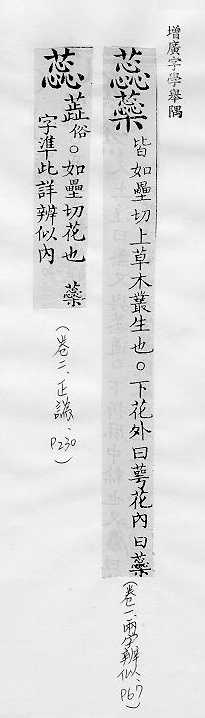 增廣字學舉隅
蕊蘂 皆如壘切上草木叢生也。下花外曰萼花內曰蘂
(卷一、兩字辨似、P67)
蕊 蕋俗。如壘切花也 蘂
字準此詳辨似內
(卷二、正譌、P230)